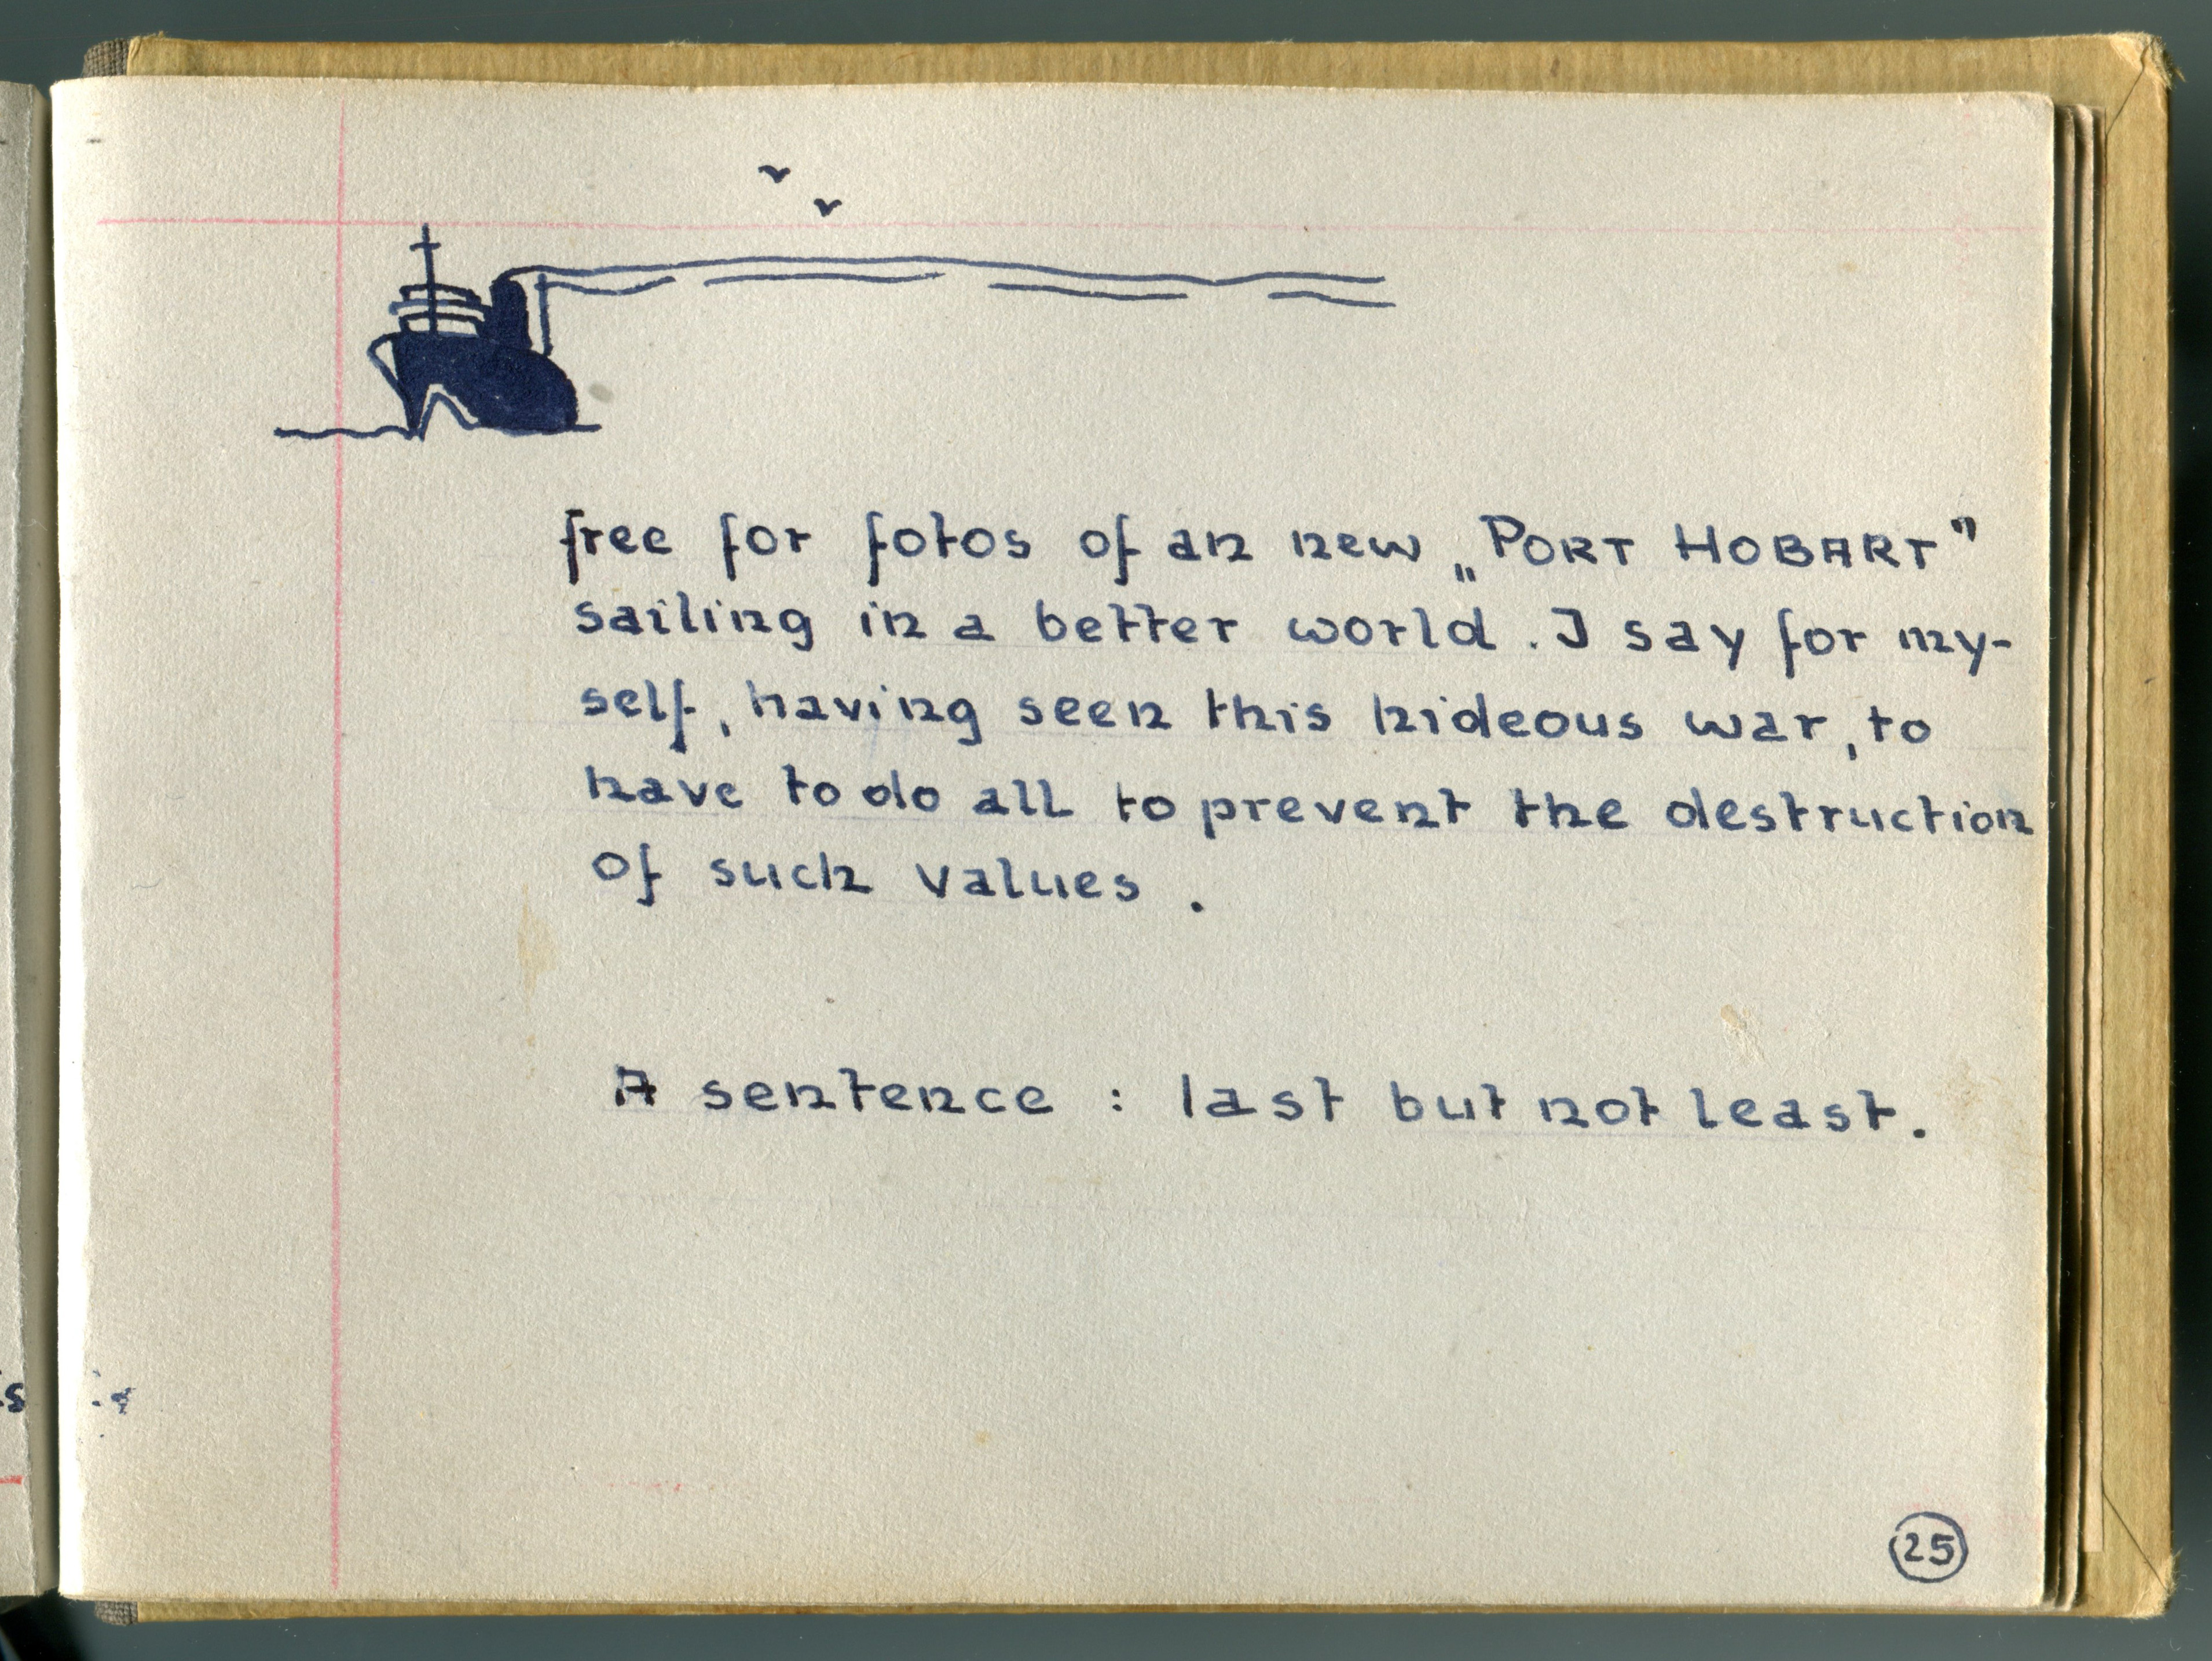 free for fotos of an new „PORT HOBART”
sailing in a better world. I say for my-
self, having seen this hideous war, to
have to do all to prevent the destruction
of such values.
A sentence : last but not least.
25